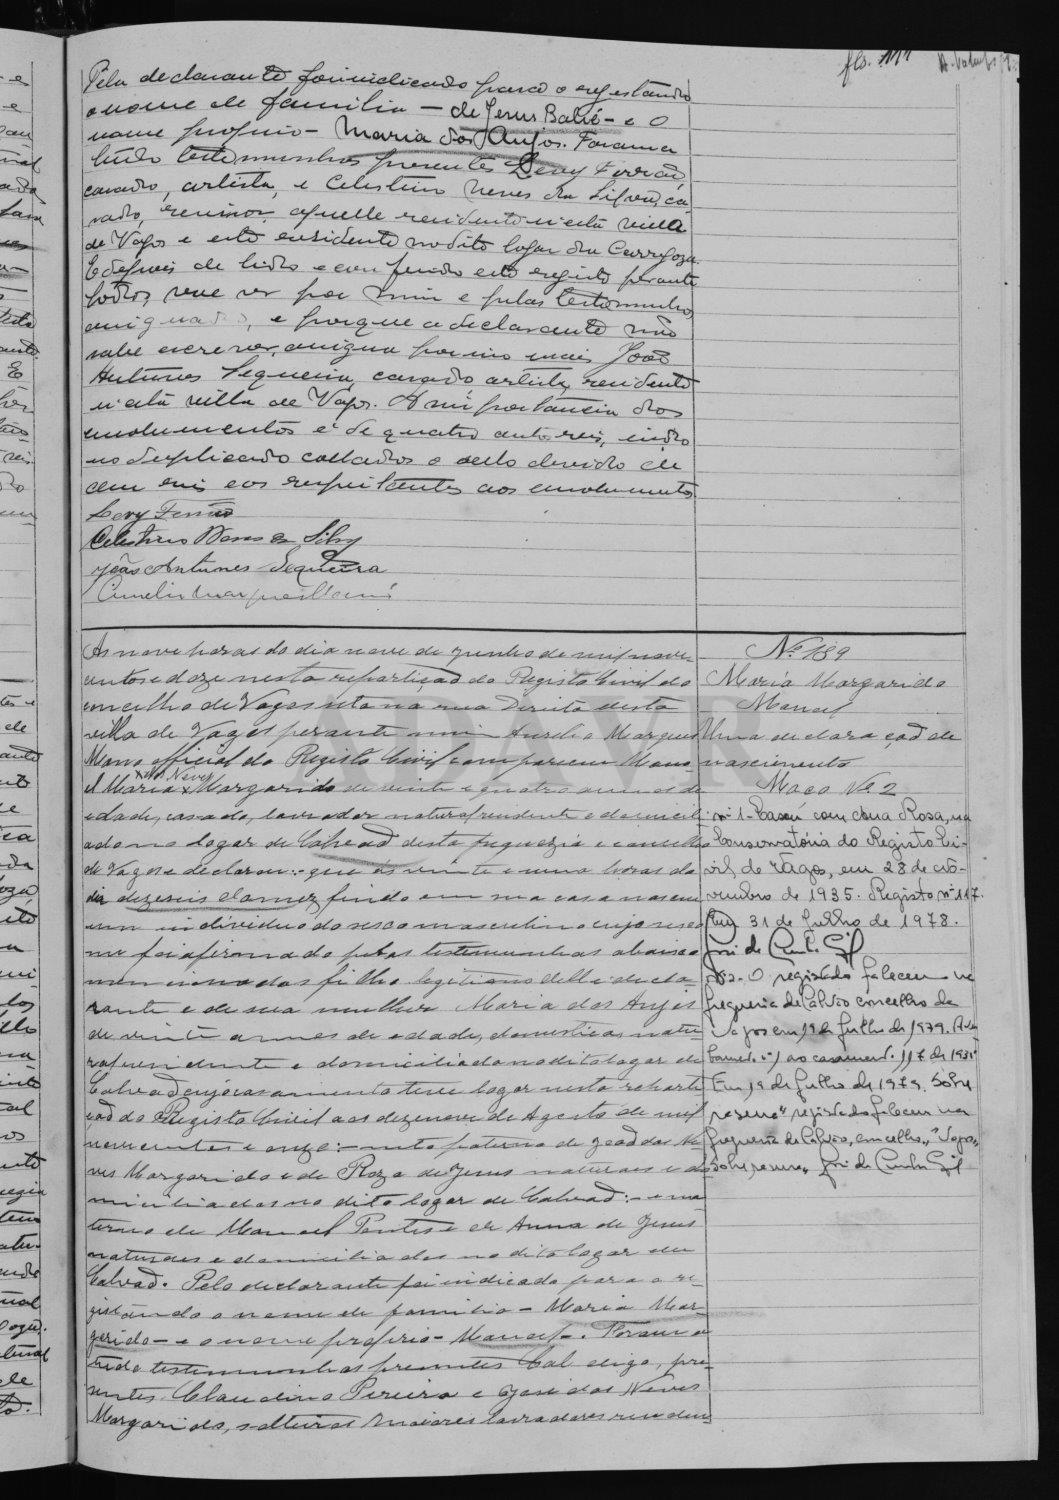 fls. 111
Pela declarante foi indicado para o registando
o nome de familia — de Jesus Balié — e o
nome proprio — Maria dos Anjos. Foram a
tudo testemunhas presentes Levy Ferrão
casado, artista, e Celestino Neves da Silva, ca-
sado, aquelle residente n'esta villa
de Vagos e este residente no dito logar da Carregoza.
E depois de lido e conferido este registo perante
todos, vae ser por mim e pelas testemunhas
assignado, e porque a declarante não
sabe escrever, assigna por ella mais João
Antunes Sequeira, casado artista, residente
n'esta villa de Vagos. A importancia dos
emolumentos é de quatrocentos reis, indo
no duplicado collados o sello devido de
cem reis e os respeitantes aos emolumentos.
Levy Ferrão
Celestino Neves da Silva
João Antunes Sequeira
Aurelio Marques Mano
As nove horas do dia nove de Junho de mil nove-
centos e doze nesta repartição do Registo Civil do
concelho de Vagos sita na rua Direita desta
villa de Vagos perante mim Aurelio Marques
Mano official do Registo Civil compareceu Mano-
el Maria das Neves Margarido de vinte e quatro annos de
edade, casado, lavrador natural residente e domicili-
ado no logar de Calvão desta freguezia e concelho
de Vagos e declarou: — que ás vinte e uma horas do
dia dezeseis do mez findo em sua casa nasceu
um individuo do sexo masculino cujo sexo
me foi afirmado pelas testemunhas abaixo
mencionadas filho legitimo delle decla-
rante e de sua mulher Maria dos Anjos
de vinte annos de edade, domestica, natu-
ral residente e domiciliada no dito logar de
Calvão cujo casamento teve logar nesta reparti-
ção do Registo Civil aos dezenove de Agosto de mil
novecentos e onze: — neto paterno de João das Ne-
ves Margarido e de Roza de Jesus naturaes e do-
miciliados no dito logar de Calvão: — e ma-
terno de Manoel Pontes e de Anna de Jesus
naturaes e domiciliados no dito logar de
Calvão. Pelo declarante foi indicado para o re-
gistando o nome de familia — Maria Mar-
garido — e o nome proprio — Manoel —. Foram a
tudo testemunhas presentes Cal digo, pre-
sentes Claudino Pereira e José das Neves
Margarido, solteiros maiores lavradores residen-
Nº 189
Maria Margarido
Manoel
Uma declaração de
nascimento
Maço Nº 2
nº 1 - Casou com Rosa, na
Conservatória do Registo Ci-
vil de Vagos, em 28 de
de 1935. Registo nº 117.
Em 31 de Julho de 1978.
José da Cunha Gil
nº 2 - O registado faleceu na
freguesia de Calvão concelho de
Vagos em 19 de Julho de 1979.
ao casament. 117 de 1935
Em 19 de Julho de 1979.
registado faleceu na
freguesia de Calvão, concelho, Vagos,
José da Cunha Gil
ADAVR